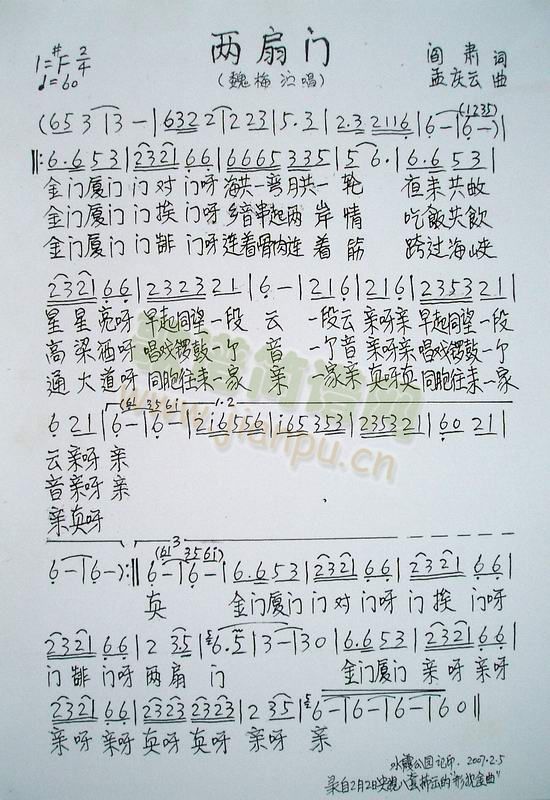 两扇门
1=#F 2/4
♩=60
(魏梅 演唱)
阎肃 词
孟庆云 曲
(65 3 | 3 - | 6322 2 | 223 | 5·3 | 2·3 2116 | 6 - | 6 -) |
(1235)
‖: 6·6 53 | 2321 66 | 6665 335 | 5 6· | 6·6 53 |
金门厦门 门对 门呀 海共一弯月共一 轮 夜来共
金门厦门 门挨 门呀 乡音串起两 岸 情 吃飯共飲
金门厦门 门靠 门呀 连着骨肉连 着 筋 跨过海峡
2321 66 | 2323 21 | 6 - | 216 | 216 | 2353 21 |
星星亮呀 早起同望一段 云 一段云 亲呀亲 早起同望一段
高梁酒呀 唱戏锣鼓一个 音 一个音 亲呀亲 唱戏锣鼓一个
通大道呀 同胞往来一家 亲 一家亲 真呀真 同胞往来一家
(6i 356i) 1.2
6 21 | 6 - | 6 - | 2i6556 | i65353 | 235321 | 60 21 |
云亲呀 亲
音亲呀 亲
亲真呀
3
(61 356i)
6 - | 6 - :‖ 6 - | 6 - | 6·6 53 | 2321 66 | 2321 66 |
真 金门厦门 门对 门呀 门挨 门呀
2321 66 | 2 35 | 6·5 | 3 - | 30 | 6·6 53 | 2321 66 |
门靠 门呀 两扇 门 金门厦门 亲呀 亲呀
2321 66 | 2323 2323 | 2 35 | 6 - | 6 - | 6 - | 60 ‖
亲呀 亲呀 真呀 真呀 亲呀 亲
公园记印. 2007.2.5
录自2月2日央视八套
www.jianpu.cn